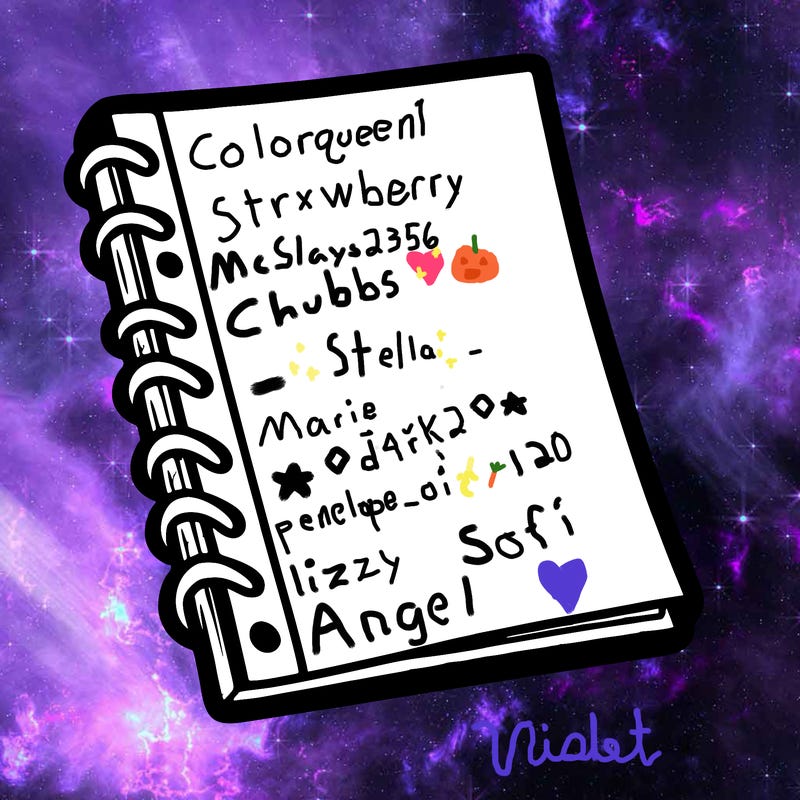 Colorqueen1
Strxwberry
McSlays2356
Chubbs 💖🎃
-✨Stella✨-
Marie
★◇d̄4řk2◇★
penelope_oi✨🥕120
lizzy Sofi
Angel 💜
Violet